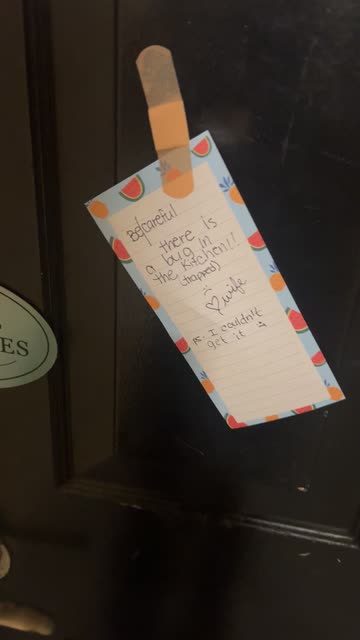 Be careful
there is
a bug in
the kitchen!!
(trapped)
:(
♡ wife
PS. I couldn't
get it :(
ES